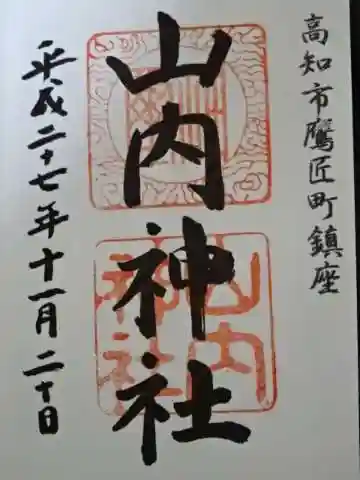 高知市鷹匠町鎮座
山内神社
山内神社
平成二十七年十一月二十日